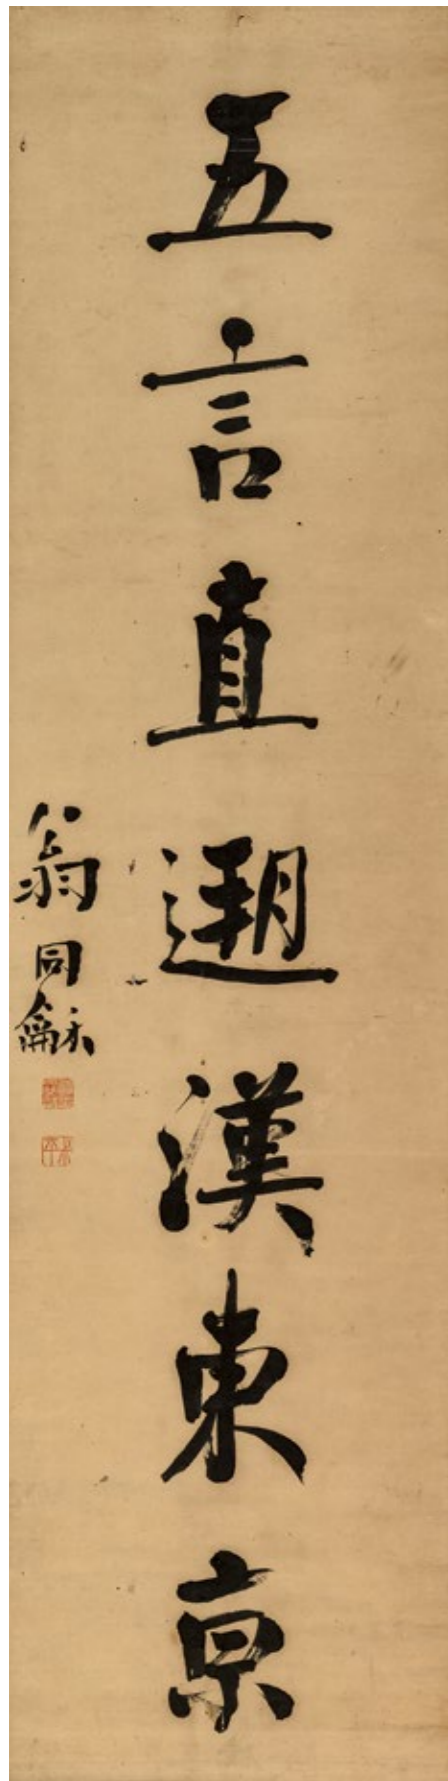 五言直遡漢東京
翁同龢